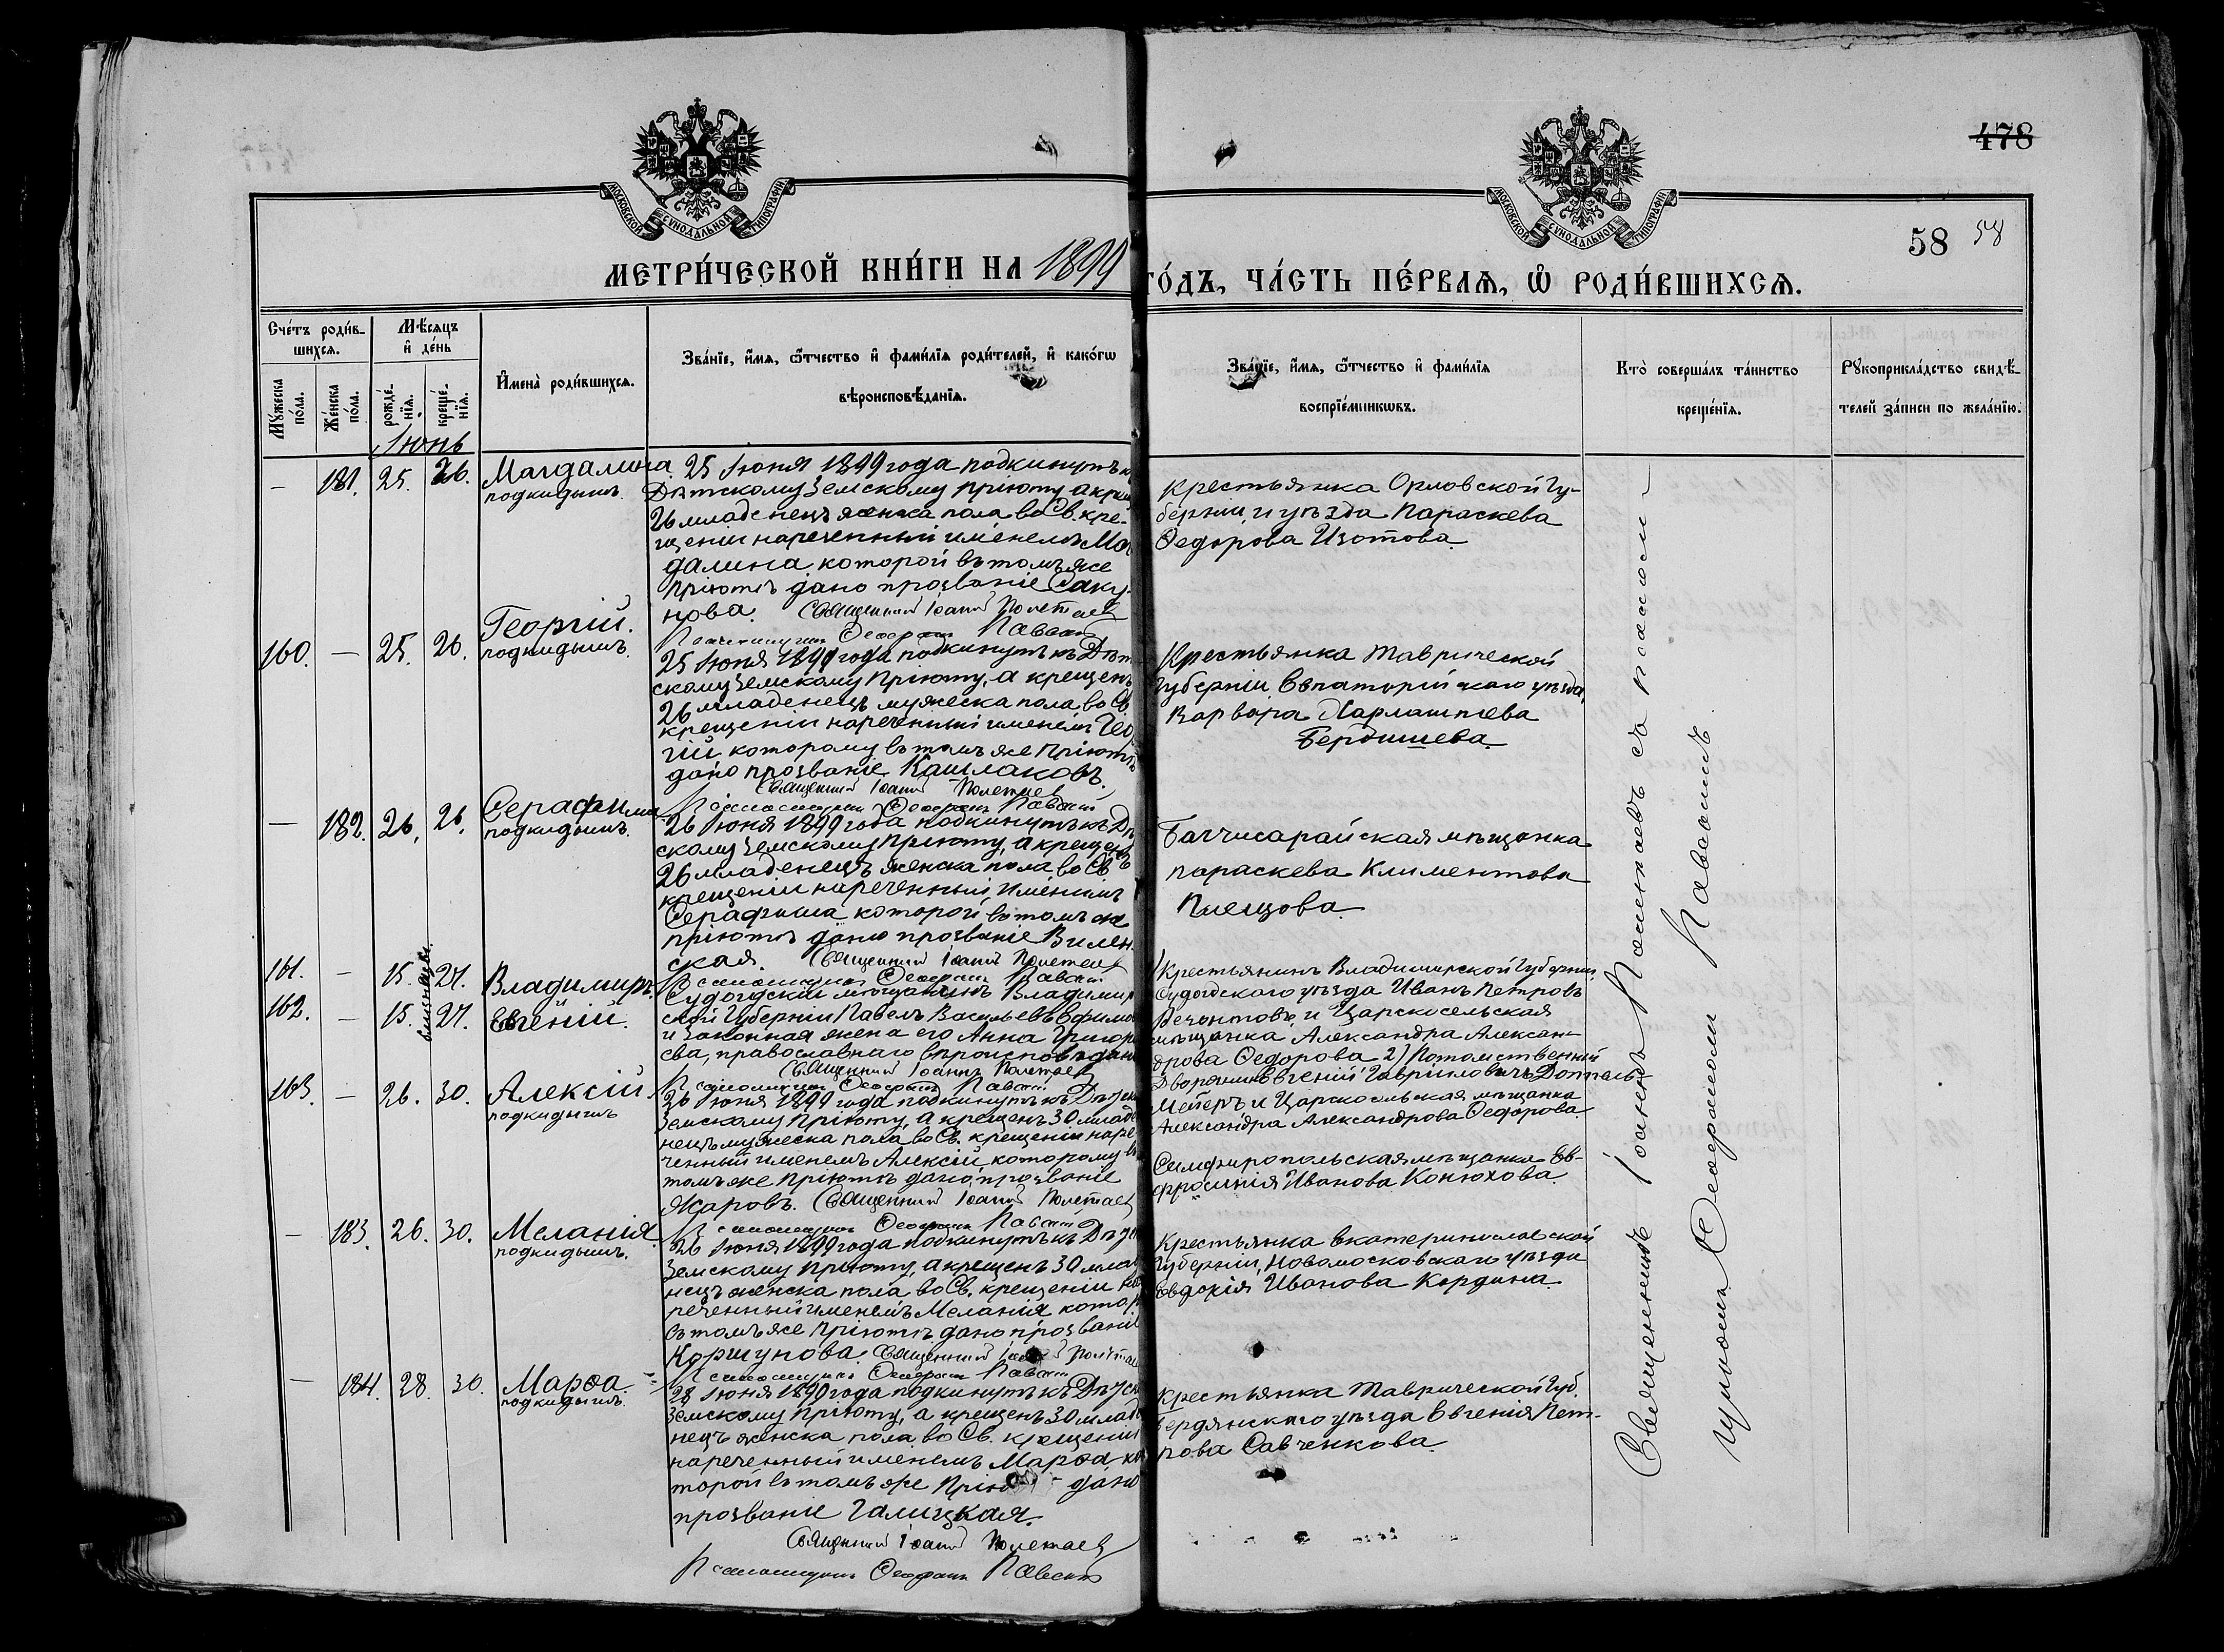 478
МОСКОВСКОЙ СѴНОДАЛЬНОЙ ТИПОГРАФІИ
МОСКОВСКОЙ СѴНОДАЛЬНОЙ ТИПОГРАФІИ
58 58
МЕТРИ́ЧЕСКОЙ КНИ́ГИ НА 1899
ГО́ДЪ, ЧА́СТЬ ПЕ́РВАѦ, Ѡ҆ РОДИ́ВШИХСѦ.
Сче́тъ роди́в-
шихсѧ.
Мꙋ́жеска по́ла.
Же́нска по́ла.
Мѣ́сѧцъ и҆ де́нь
рожде́-
нїѧ.
креще́-
нїѧ.
И҆мена̀ роди́вшихсѧ.
Зва́нїе, и҆́мѧ, ѻ҆́тчество и҆ фами́лїѧ роди́телей, и҆ како́гѡ
вѣроисповѣ́данїѧ.
Зва́нїе, и҆́мѧ, ѻ҆́тчество и҆ фами́лїѧ
воспрїе́мникѡвъ.
Кто̀ соверша́лъ та́инство
креще́нїѧ.
Рꙋкоприкла́дство свидѣ́-
телей за́писи по жела́нїю.
Іюнь
— 181. 25. 26. Магдалина
подкидышъ.
25 Іюня 1899 года подкинутъ къ
Дѣтскому Земскому Пріюту, а крещ
26 младенецъ женска пола во Св. кре-
щеніи нареченный именемъ Маг
далина, которой въ томъ же
Пріютѣ дано прозваніе Саку-
нова. Священникъ Іоаннъ Полетаев
Псаломщикъ Ѳеофанъ Павскій
Крестьянка Орловской Гу-
берніи, и уѣзда Параскева
Ѳедорова Изотова.
160. — 25. 26. Георгій.
подкидышъ.
25 Іюня 1899 года подкинутъ къ Дѣт
скому Земскому Пріюту, а крещенъ
26 младенецъ мужеска пола во Св.
крещеніи нареченный именемъ Геор
гій которому въ томъ же Пріютѣ
дано прозваніе Кашлаковъ.
Священникъ Іоаннъ Полетаев
Псаломщикъ Ѳеофанъ Павскій
Крестьянка Таврической
Губерніи, Евпаторійскаго уѣзда,
Варвара Харлампіева
Бердишева.
— 182. 26. 26. Серафима
подкидышъ.
26 Іюня 1899 года подкинутъ къ Дѣ
скому Земскому Пріюту, а крещенъ
26 младенецъ женска пола во Св
крещеніи нареченный именемъ
Серафима которой въ томъ же
пріютѣ дано прозваніе Вилен
ская. Священникъ Іоаннъ Полетаев
Псаломщикъ Ѳеофанъ Павскій
Бахчисарайская мѣщанка
Параскева Климентова
161. — 15. 27. Владимиръ.
162. — 15. 27. Евгеній.
близнецы.
Судогдскій мѣщанинъ Владимир
ской Губерніи Павелъ Васильевъ Ефимо
и законная жена его Анна Григорь
ева, православнаго вѣроисповѣдан
Священникъ Іоаннъ Полетаев
Псаломщикъ Ѳеофанъ Павскій
Крестьянинъ Владимирской Губерніи,
Судогдскаго уѣзда Иванъ Петровъ
и Царскосельская
мѣщанка Александра Алексан-
дрова Ѳедорова 2) Потомственный
Дворянинъ Евгеній Гавриловичъ Доппель-
Мейеръ и Царскосельская мѣщанка
Александра Александрова Ѳедорова.
163. — 26. 30. Алексій.
подкидышъ
26 Іюня 1899 года подкинутъ къ Дѣтск
Земскому Пріюту, а крещенъ 30 младе
нецъ мужеска пола во Св. крещеніи наре
ченный именемъ Алексій, которому въ
томъ же Пріютѣ дано прозваніе
Жаровъ. Священникъ Іоаннъ Полетаев
Псаломщикъ Ѳеофанъ Павскій
Симферопольская мѣщанка Ев-
фросинія Иванова Конюхова
— 183. 26. 30. Меланія.
подкидышъ.
26 Іюня 1899 года подкинутъ къ Дѣтс
Земскому Пріюту, а крещенъ 30 млад
нецъ женска пола во Св. крещеніи на
реченный именемъ Меланія котор
въ томъ же Пріютѣ дано прозваніе
Коршунова. Священникъ Іоаннъ Полетае
Псаломщикъ Ѳеофанъ Павскій
Крестьянка Екатеринославской
Губерніи, Новомосковскаго уѣзда
Евдокія Иванова Кордина.
— 184. 28. 30. Марѳа.
подкидышъ.
28 Іюня 1899 года подкинутъ къ Дѣтск
Земскому Пріюту, а крещенъ 30 младе
нецъ женска пола во Св. крещеніи
нареченный именемъ Марѳа ко
торой въ томъ же Прію дано
прозваніе Галицкая.
Священникъ Іоаннъ Полетаев
Псаломщикъ Ѳеофанъ Павскій
Крестьянка Таврической Губ.
Бердянскаго уѣзда Евгенія Пет-
рова Савченкова.
Священникъ Іоаннъ Полетаевъ съ псалом-
щикомъ Ѳеофаномъ Павскимъ